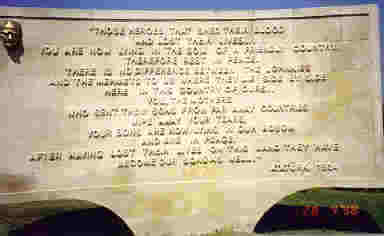 "THOSE HEROES THAT SHED THEIR BLOOD
AND LOST THEIR LIVES...
YOU ARE NOW LYING IN THE SOIL OF A FRIENDLY COUNTRY.
THEREFORE REST IN PEACE.
THERE IS NO DIFFERENCE BETWEEN THE JOHNNIES
AND THE MEHMETS TO US WHERE THEY LIE SIDE BY SIDE
HERE IN THIS COUNTRY OF OURS...
YOU, THE MOTHERS,
WHO SENT THEIR SONS FROM FAR AWAY COUNTRIES
WIPE AWAY YOUR TEARS,
YOUR SONS ARE NOW LYING IN OUR BOSOM
AND ARE IN PEACE.
AFTER HAVING LOST THEIR LIVES ON THIS LAND THEY HAVE
BECOME OUR SONS AS WELL."
ATATURK 1934